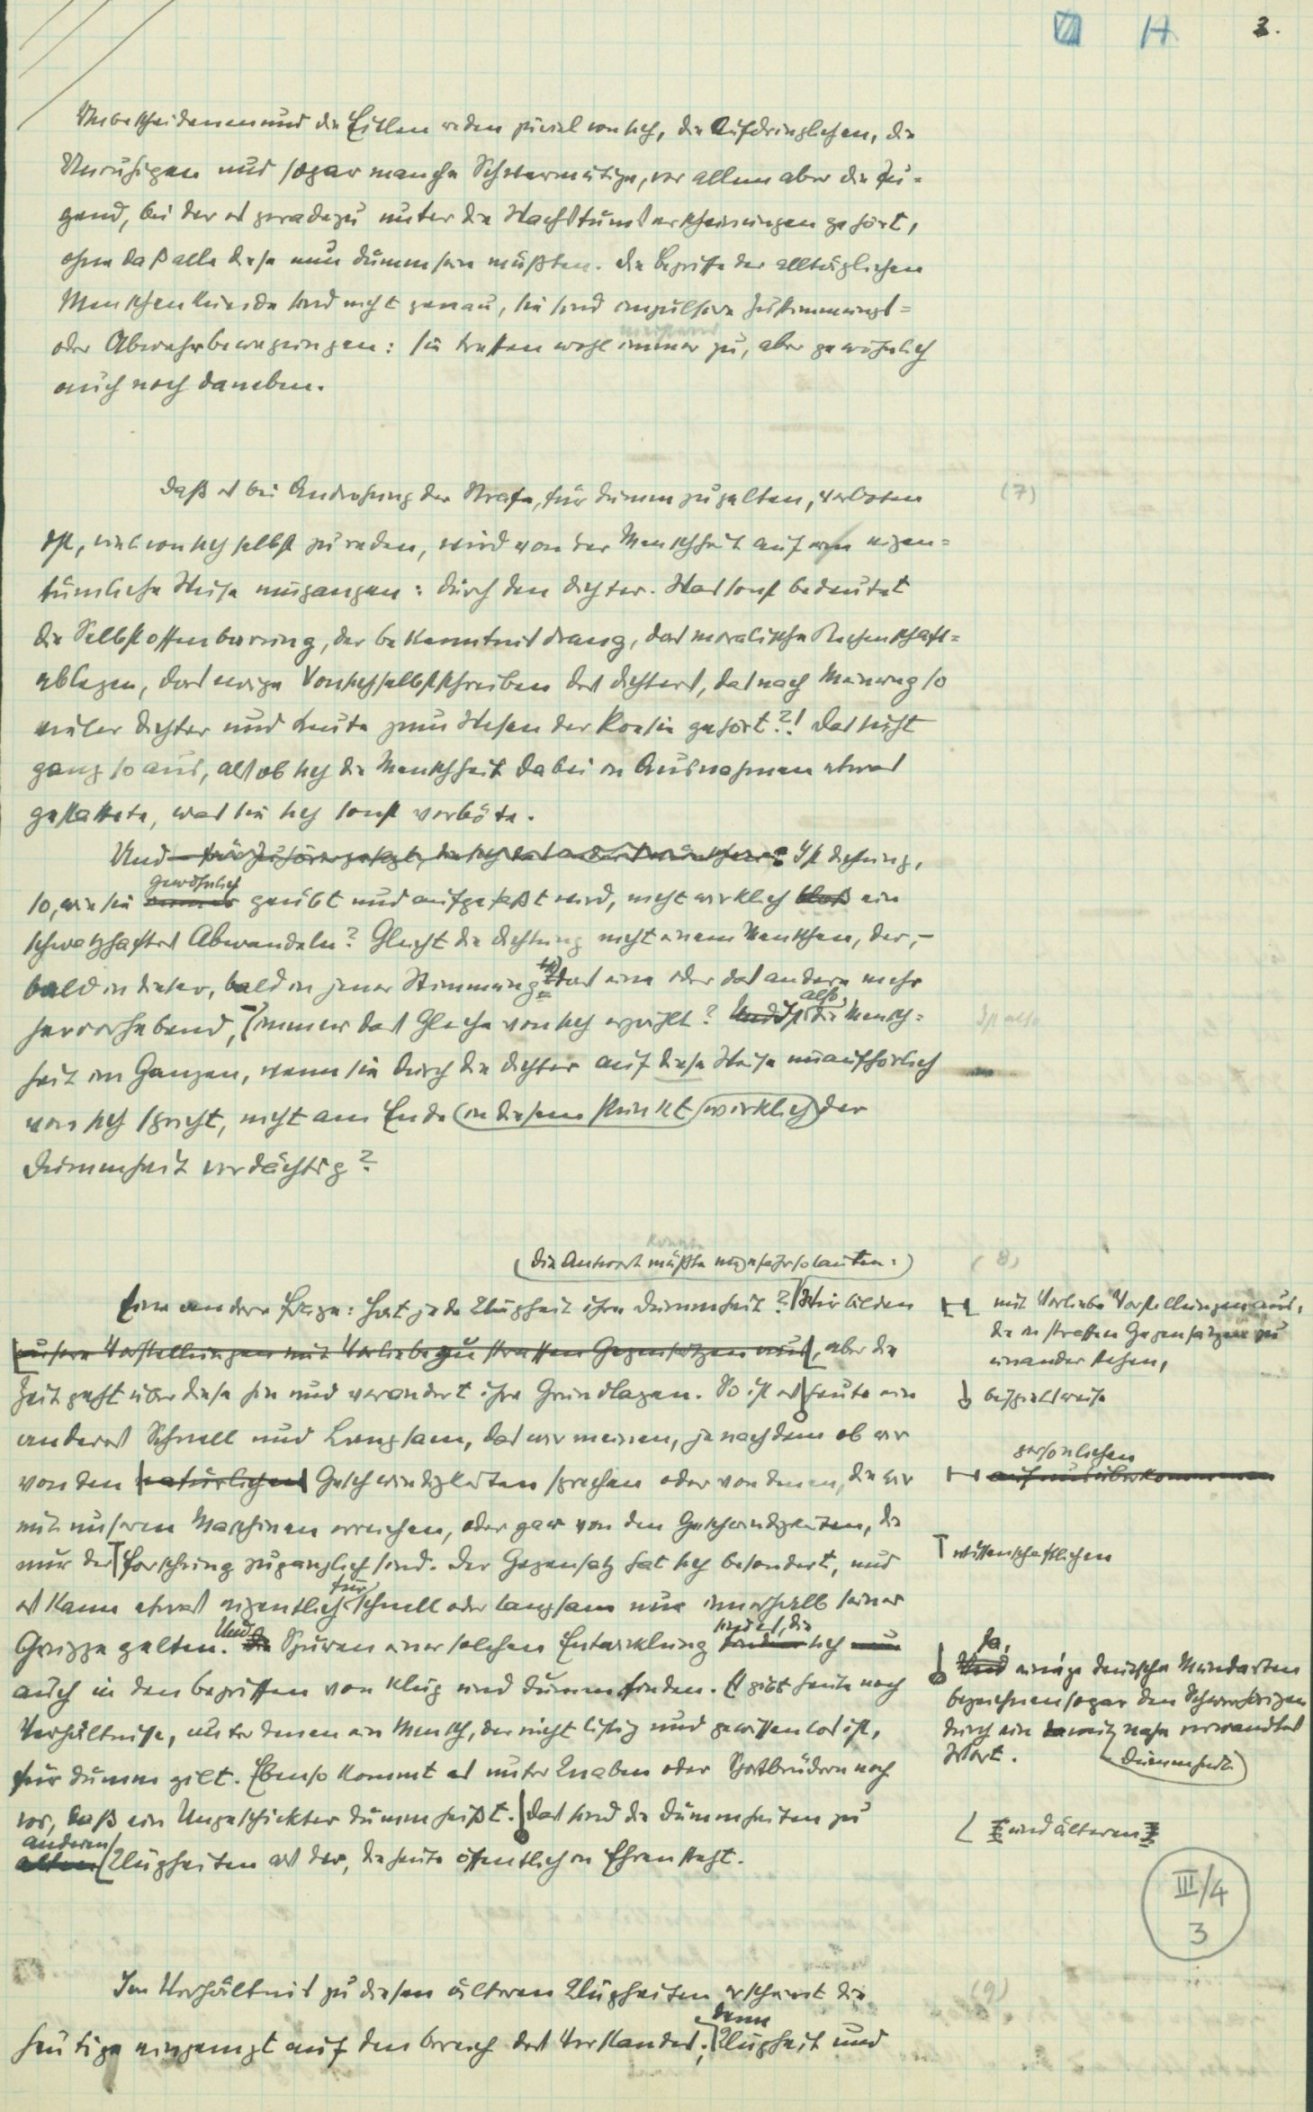 H 3.
Unbescheidenen und die Eitlen reden zuviel von sich, die Aufdringlichen, die
Unruhigen und sogar manche Schwermütige, vor allem aber die Ju-
gend, bei der es geradezu unter die Wachstumserscheinungen gehört,
ohne daß alle diese nun dumm sein müßten. Die Begriffe der alltäglichen
Menschenkunde sind nicht genau, sie sind impulsive Zustimmungs=
oder Abwehrbewegungen: sie treffen wohl immer zu, aber gewöhnlich
auch noch daneben.
Daß es bei Androhung der Strafe, für dumm zu gelten, verboten
(7)
ist, viel von sich selbst zu reden, wird von der Menschheit auf eine eigen=
tümliche Weise umgangen: durch den Dichter. Was sonst bedeutet
die Selbstoffenbarung, der Bekenntnisdrang, das moralische Rechenschaft=
ablegen, das ewige Vonsichselbstschreiben des Dichters, das nach Meinung so
vieler Dichter und Leute zum Wesen der Poesie gehört?! Das sieht
ganz so aus, als ob sich die Menschheit dabei in Ausnahmen etwas
gestattete, was sie sich sonst verböte.
Und Ist Dichtung,
gewöhnlich
so, wie sie immer geübt und aufgefaßt wird, nicht wirklich bloß ein
schwatzhaftes Abwandeln? Gleicht die Dichtung nicht einem Menschen, der, –
bald in dieser, bald in jener Stimmung das eine oder das andere mehr
hervorhebend, – immer das Gleiche von sich erzählt? Und Ist also die Mensch=
Ist also
heit im Ganzen, wenn sie durch die Dichter auf diese Weise unaufhörlich
von sich spricht, nicht am Ende (in diesem Punkt) wirklich der
Dummheit verdächtig?
(Die Antwort müßte ungefähr so lauten:)
(8)
Eine andere Frage: hat jede Klugheit ihre Dummheit? Wir bilden
mit Vorliebe Vorstellungen aus,
die in straffen Gegensätzen zu
einander stehen,
unsere Vorstellungen mit Vorliebe zu straffen Gegensätzen aus, aber die
Zeit geht über diese hin und verändert ihre Grundlagen. So ist es heute ein
beispielsweise
anderes Schnell und Langsam, das wir meinen, je nachdem ob wir
von den natürlichen Geschwindigkeiten sprechen oder von denen, die wir
persönlichen
auf uns überkommenen
mit unseren Maschinen erreichen, oder gar von den Geschwindigkeiten, die
nur der Forschung zugänglich sind. Der Gegensatz hat sich besondert, und
wissenschaftlichen
es kann etwas eigentlich für schnell oder langsam nur innerhalb seiner
Gruppe gelten. Und Die Spuren einer solchen Entwicklung sind es, die finden sich nun
auch in den Begriffen von klug und dumm finden. Es gibt heute noch
Verhältnisse, unter denen ein Mensch, der nicht listig und gewissenlos ist,
für dumm gilt. Ebenso kommt es unter Knaben oder Sportbrüdern noch
vor, daß ein Ungeschickter dumm heißt. Das sind die Dummheiten zu
anderen
alten Klugheiten als der, die heute öffentlich in Ehren steht.
Ja,
Und einige deutsche Mundarten
bezeichnen sogar den Schwerhörigen
durch ein nahe verwandtes
Wort. (Dummheit)
und älteren
III/4
3
Im Verhältnis zu diesen älteren Klugheiten erscheint die
(9)
heutige eingeengt auf den Bereich des Verstandes; denn Klugheit und